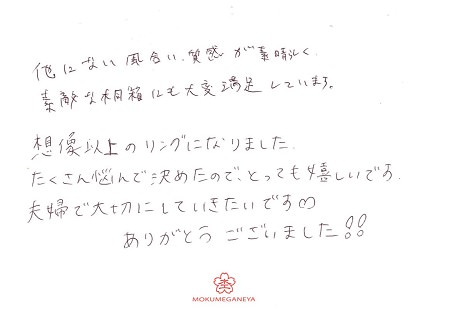 他にない風合い、質感が素晴らしく、
素敵な桐箱にも大変満足しています。
想像以上のリングになりました。
たくさん悩んで決めたので、とっても嬉しいです。
夫婦で大切にしていきたいです♡
ありがとうございました!!
MOKUMEGANEYA